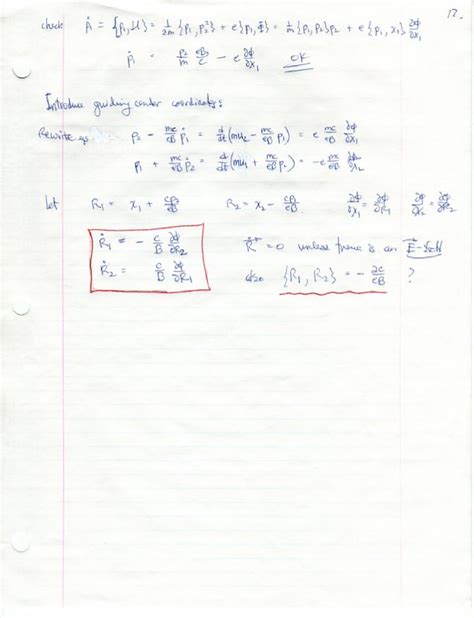 12.
check ṗ₁ = {p₁, H} = 1/2m {p₁, p₂²} + e{p₁, Φ} = 1/m {p₁, p₂}p₂ + e{p₁, x₁} ∂φ/∂x₁
ṗ₁ = p₂/m eB/c − e ∂φ/∂x₁ OK
Introduce guiding center coordinates:
Rewrite as p₂ − mc/eB ṗ₁ = d/dt(mu₂ − mc/eB p₁) = e mc/eB ∂φ/∂x₁
p₁ + mc/eB ṗ₂ = d/dt(mu₁ + mc/eB p₂) = −e mc/eB ∂φ/∂x₂
let R₁ = x₁ + cp₂/eB R₂ = x₂ − cp₁/eB ∂φ/∂x₁ = ∂φ/∂R₁ ∂φ/∂x₂ = ∂φ/∂R₂
Ṙ₁ = − c/B ∂φ/∂R₂ = 0 unless there is an E-field
Ṙ₂ = c/B ∂φ/∂R₁ also {R₁, R₂} = − c/eB ?